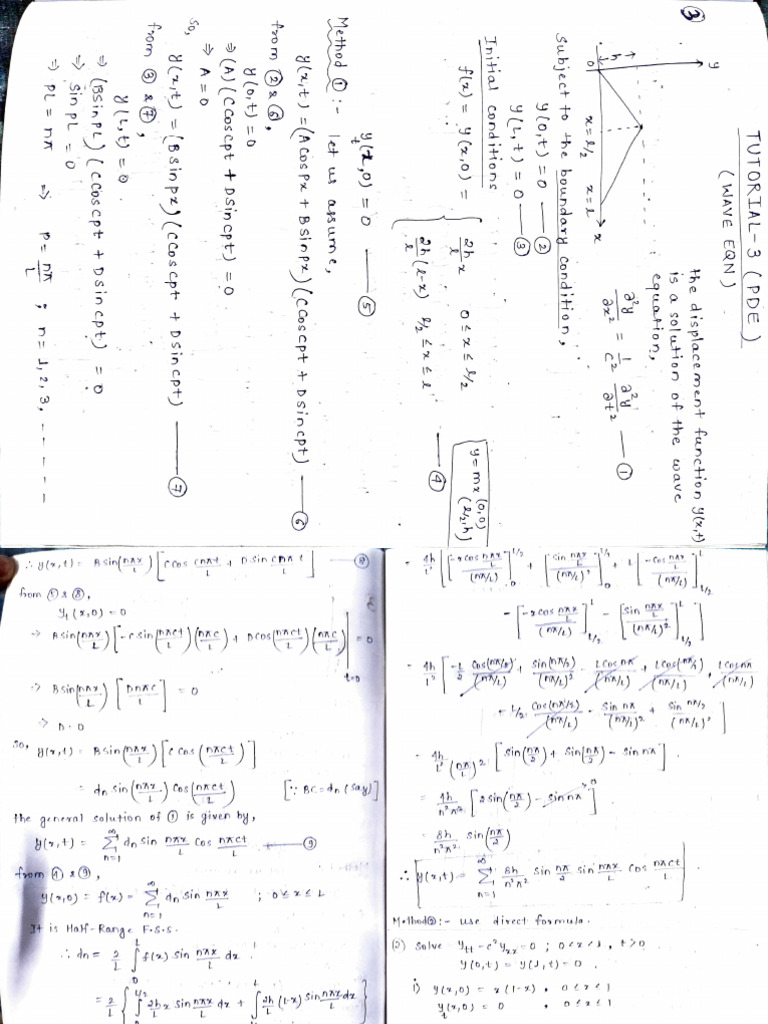 TUTORIAL-3 (PDE)
(WAVE EQN)
③
y
h
0
x=l/2
x=l
x
the displacement function y(x,t)
is a solution of the wave
equation,
∂²y/∂x² = 1/c² ∂²y/∂t² — ①
subject to the boundary condition,
y(0,t) = 0 — ②
y(L,t) = 0 — ③
Initial conditions
f(x) = y(x,0) = { 2h/l x 0 ≤ x ≤ l/2
2h/l (l-x) l/2 ≤ x ≤ l — ④
y = mx (0,0)
(l/2,h)
y_t(x,0) = 0 — ⑤
Method ① :- let us assume,
y(x,t) = (A cospx + B sinpx)(C coscpt + D sincpt) — ⑥
from ② & ⑥,
y(0,t) = 0
⇒ (A)(C coscpt + D sincpt) = 0
⇒ A = 0
so,
y(x,t) = (B sinpx)(C coscpt + D sincpt) — ⑦
from ③ & ⑦,
y(L,t) = 0
⇒ (B sinpL)(C coscpt + D sincpt) = 0
⇒ sinpL = 0
⇒ pL = nπ ⇒ p = nπ/L ; n = 1, 2, 3, ------
∴ y(x,t) = B sin(nπx/L) [C cos cnπt/L + D sin cnπt/L] — ⑧
from ⑤ & ⑧,
y_t(x,0) = 0
⇒ B sin(nπx/L) [-C sin(nπct/L)(nπc/L) + D cos(nπct/L)(nπc/L)] |t=0 = 0
⇒ B sin(nπx/L) [Dnπc/L] = 0
⇒ D = 0
so, y(x,t) = B sin(nπx/L) [C cos(nπct/L)]
= dn sin(nπx/L) cos(nπct/L) [∵ BC = dn (say)]
the general solution of ① is given by,
y(x,t) = ∑ n=1 ∞ dn sin nπx/L cos nπct/L — ⑨
from ④ & ⑨,
y(x,0) = f(x) = ∑ n=1 ∞ dn sin nπx/L ; 0≤x≤L
It is Half-Range F.S.S.
∴ dn = 2/L ∫ 0 L f(x) sin nπx/L dx
= 2/L { ∫ 0 L/2 2h/L x sin nπx/L dx + ∫ L 2h/L (l-x) sin nπx/L dx }
= 4h/L² [ [-x cos nπx/L / (nπ/L)] 0 L/2 + [sin nπx/L / (nπ/L)²] 0 L/2 + L [-cos nπx/L / (nπ/L)] L/2 L
- [-x cos nπx/L / (nπ/L)] L/2 L - [sin nπx/L / (nπ/L)²] L/2 L ]
= 4h/L² [ -L/2 cos(nπ/2)/(nπ/L) + sin(nπ/2)/(nπ/L)² - L cos nπ/(nπ/L) + L cos(nπ/2)/(nπ/L) + L cos nπ/(nπ/L)
- L/2 cos(nπ/2)/(nπ/L) - sin nπ/(nπ/L)² + sin nπ/2/(nπ/L)² ]
= 4h/L² (nπ/L)² [sin(nπ/2) + sin(nπ/2) - sin nπ]
= 4h/n²π² [2 sin(nπ/2) - sin nπ] 0
= 8h/n²π² sin(nπ/2)
∴ y(x,t) = ∑ n=1 ∞ 8h/n²π² sin nπ/2 sin nπx/L cos nπct/L
Method② :- use direct formula.
(2) Solve y_tt - c² y_xx = 0 ; 0<x<1, t>0
y(0,t) = y(1,t) = 0.
i) y(x,0) = x(1-x), 0≤x≤1
y_t(x,0) = 0, 0≤x≤1